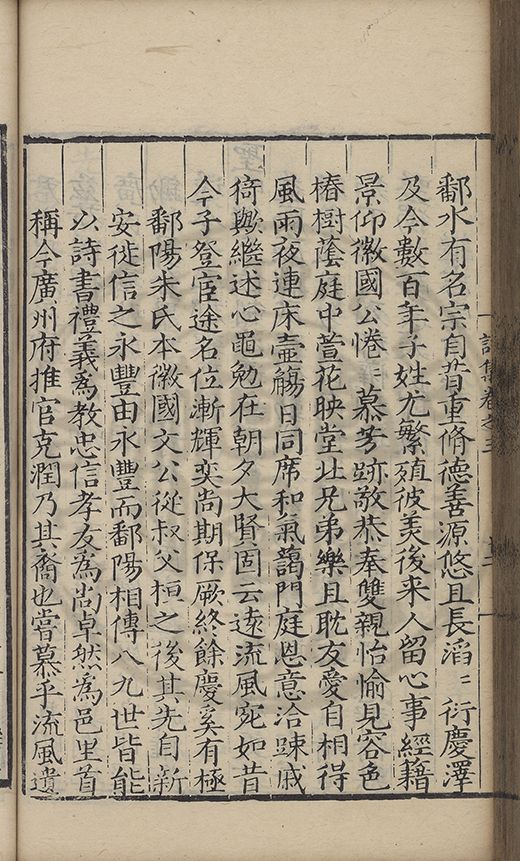 鄱水有名宗自昔重脩德善源悠且長滔〻衍慶澤
及今數百年子姓尤繁殖彼美後来人留心事經籍
景仰徽國公惓〻慕芳跡敬恭奉雙親怡愉見容色
椿樹蔭庭中萱花映堂北兄弟樂且耽友愛自相得
風雨夜連床壺觴日同席和氣藹門庭恩意洽踈戚
猗歟繼述心黽勉在朝夕大賢固云遠流風宛如昔
今子登宦途名位漸輝奕尚期保厥終餘慶奚有極
鄱陽朱氏本徽國文公從叔父桓之後其先自新
安徙信之永豐由永豐而鄱陽相傳八九世皆能
以詩書禮義爲教忠信孝友爲尚卓然爲邑里首
稱今廣州府推官克潤乃其裔也嘗慕乎流風遺